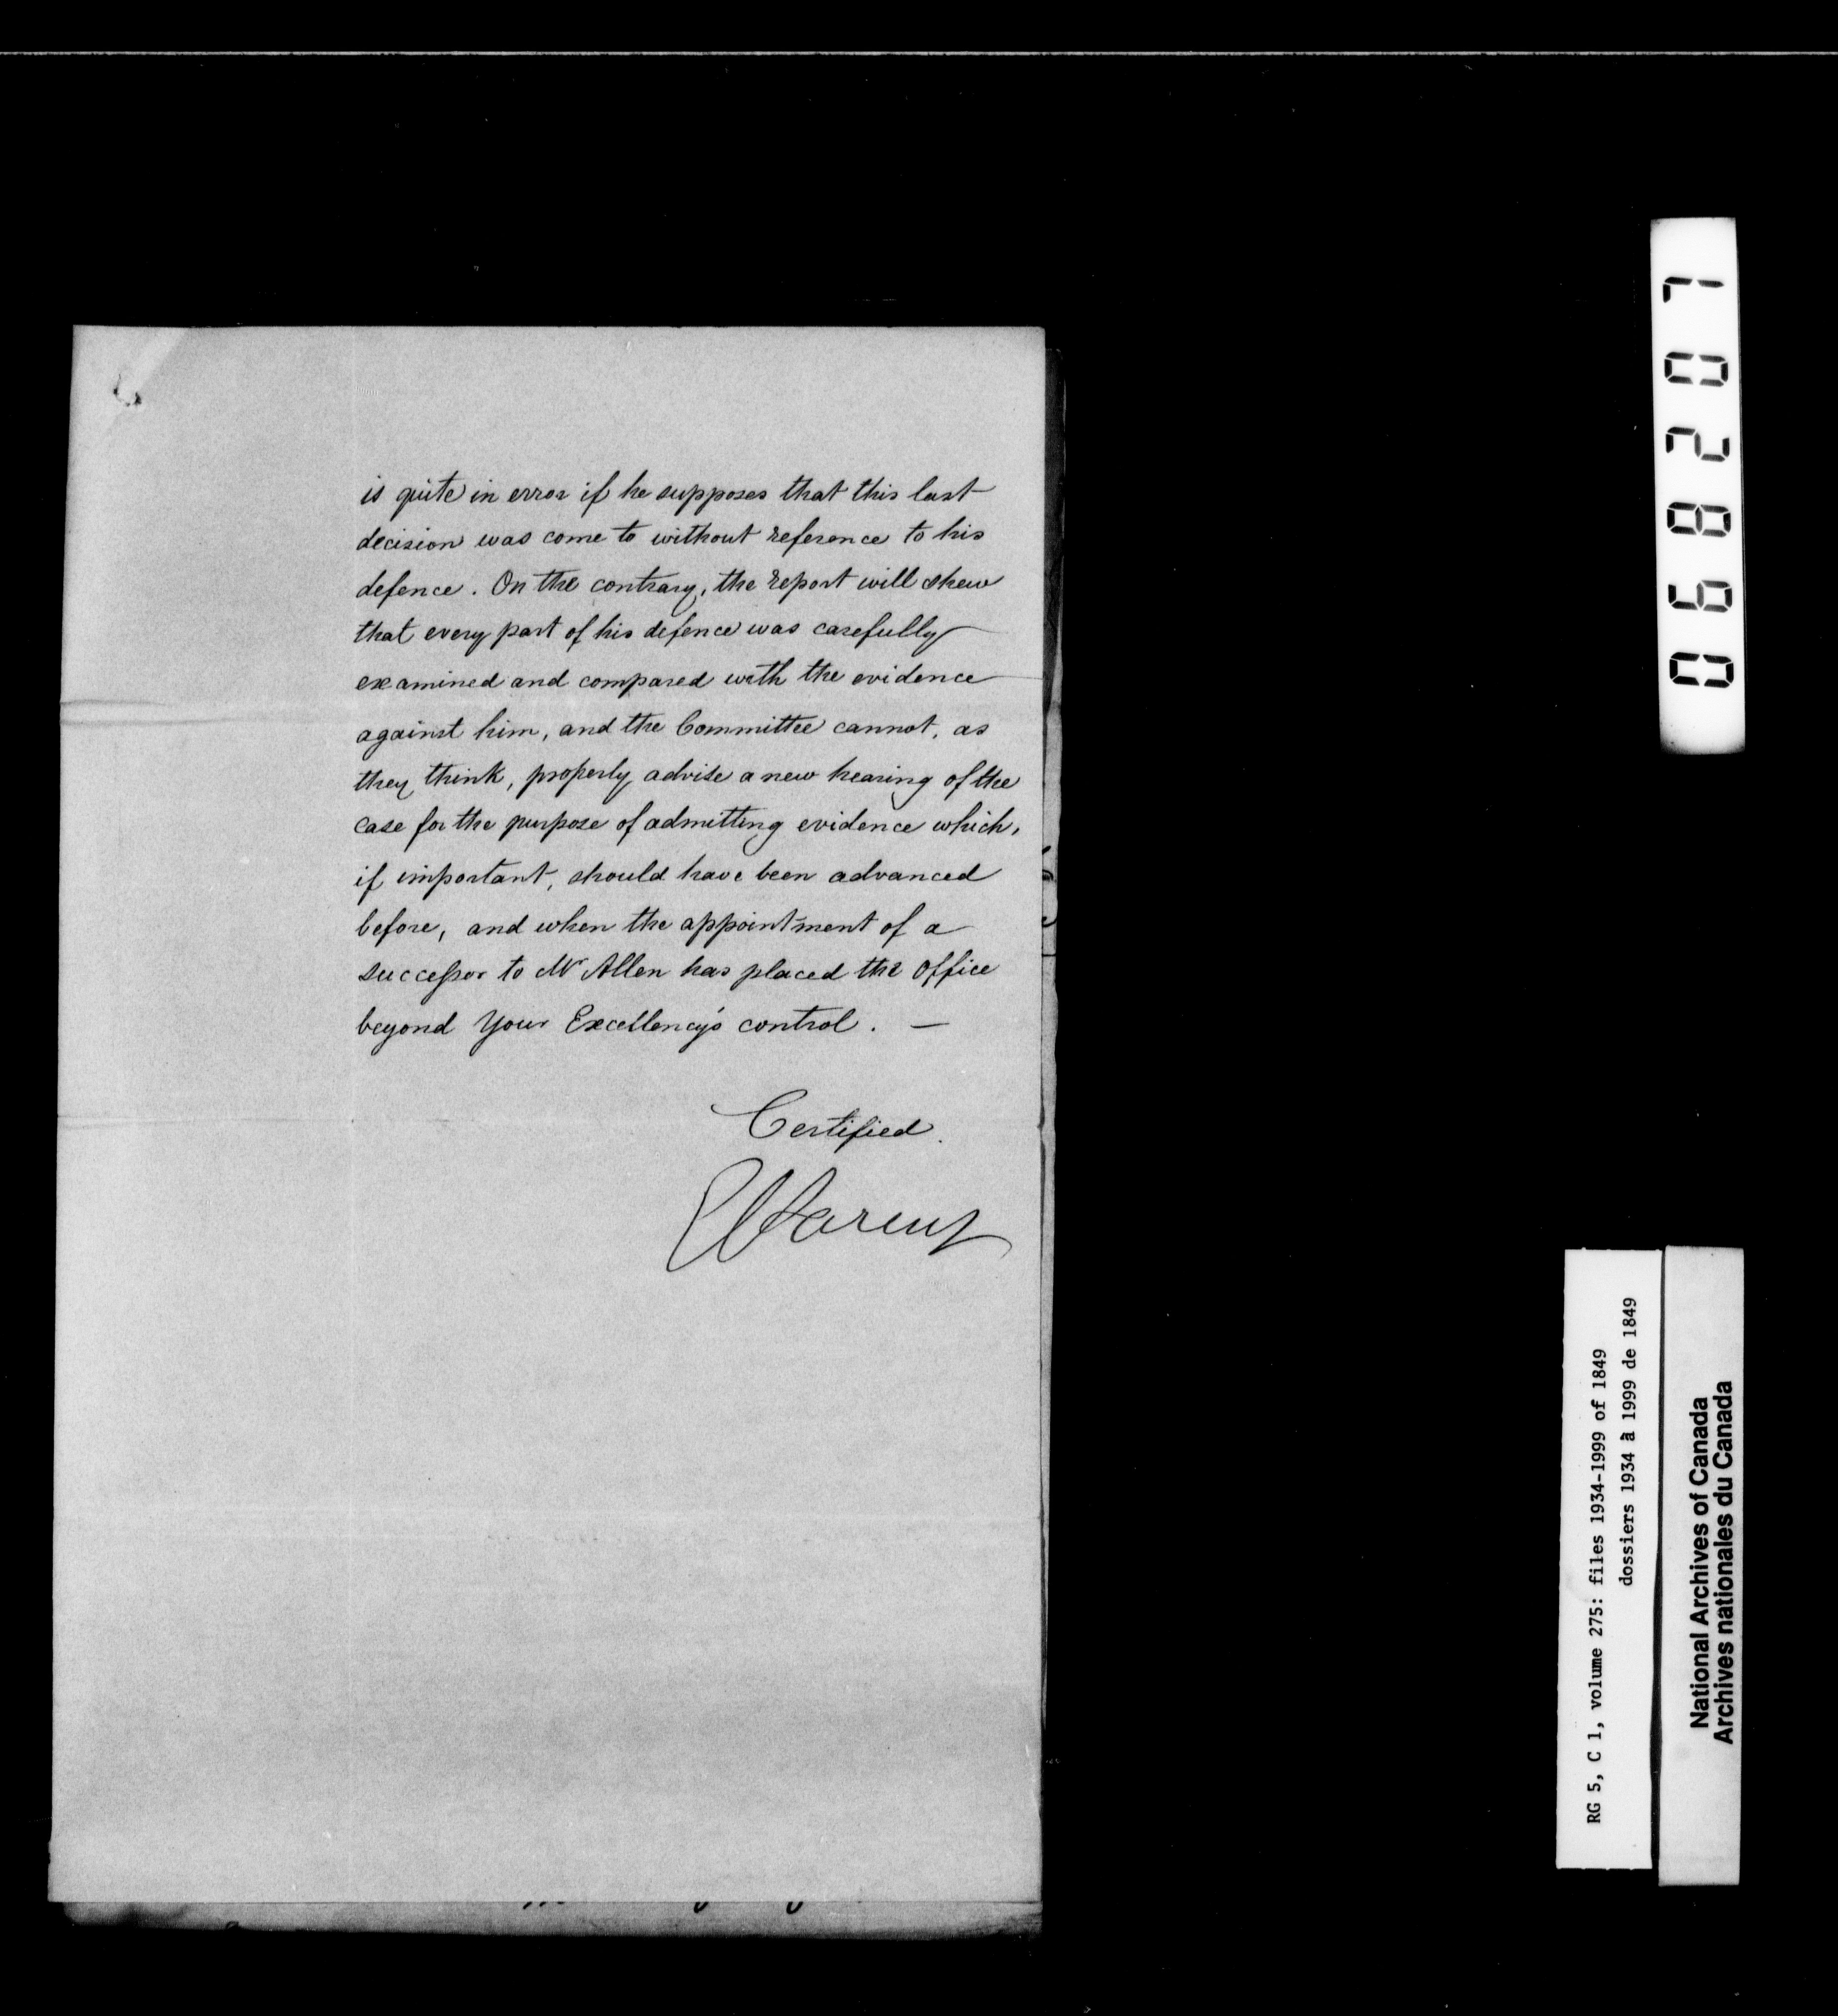 is quite in error if he supposes that this last
decision was come to without reference to his
defence. On the contrary, the report will shew
that every part of his defence was carefully
examined and compared with the evidence
against him, and the Committee cannot, as
they think, properly advise a new hearing of the
case for the purpose of admitting evidence which,
if important, should have been advanced
before, and when the appointment of a
successor to Mr Allen has placed the office
beyond Your Excellency's control. —
Certified.
E Parent
068207
RG 5, C 1, volume 275: files 1934-1999 of 1849
dossiers 1934 à 1999 de 1849
National Archives of Canada
Archives nationales du Canada